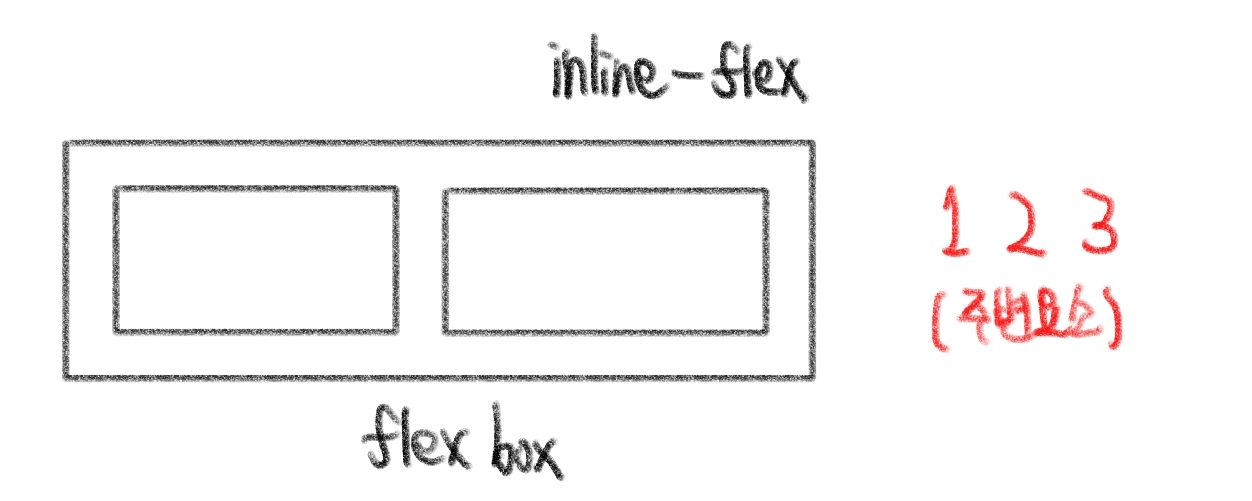 inline-flex
1 2 3
(주변요소)
flex box